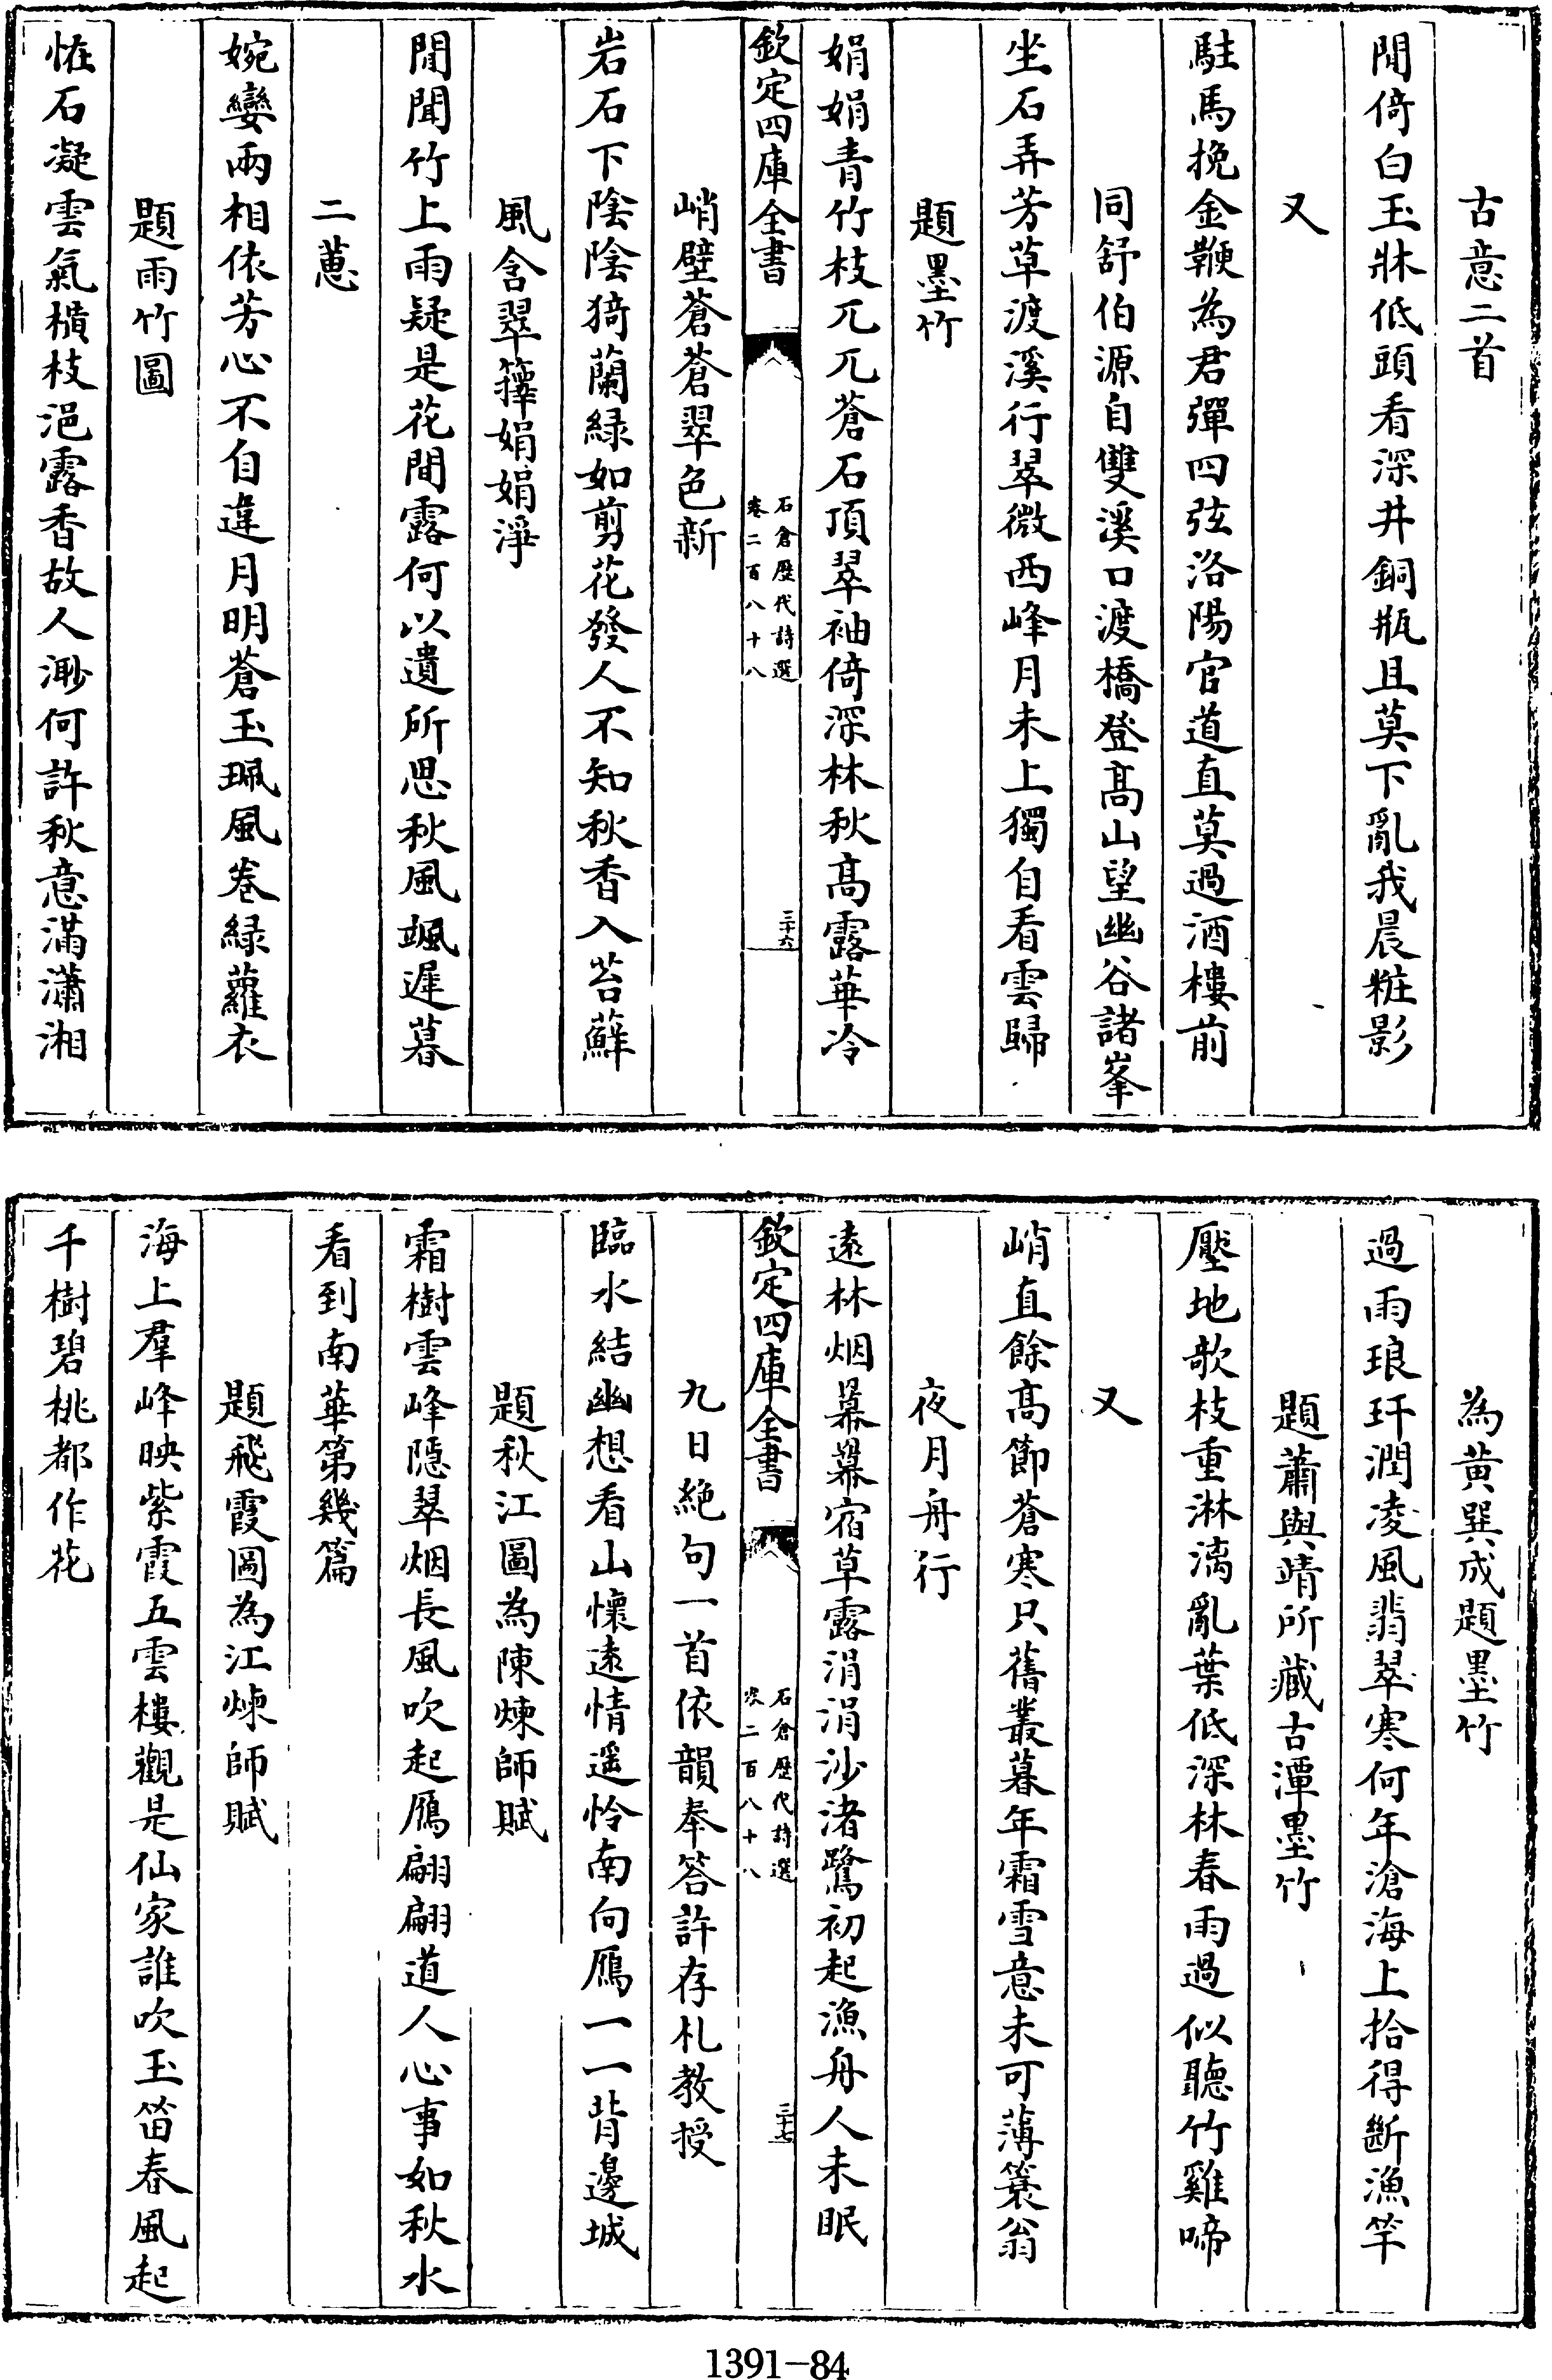 古意二首
閒倚白玉牀低頭看深井銅瓶且莫下亂我晨粧影
又
駐馬挽金鞭為君彈四弦洛陽官道直莫過酒樓前
同舒伯源自雙溪口渡橋登高山望幽谷諸峯
坐石弄芳草渡溪行翠微西峰月未上獨自看雲歸
題墨竹
娟娟青竹枝兀兀蒼石頂翠袖倚深林秋高露華冷
欽定四庫全書
石倉歷代詩選
卷二百八十八
三十六
峭壁蒼蒼翠色新
岩石下陰陰猗蘭綠如剪花發人不知秋香入苔蘚
風含翠籜娟娟淨
閒聞竹上雨疑是花間露何以遺所思秋風颯遲暮
二蕙
婉孌兩相依芳心不自違月明蒼玉珮風卷綠蘿衣
題雨竹圖
怪石凝雲氣横枝浥露香故人渺何許秋意滿瀟湘
為黄巽成題墨竹
過雨琅玕潤凌風翡翠寒何年滄海上拾得斷漁竿
題蕭與靖所藏古潭墨竹
壓地欹枝重淋漓亂葉低深林春雨過似聽竹雞啼
又
峭直餘高節蒼寒只舊叢暮年霜雪意未可薄簑翁
夜月舟行
遠林烟羃羃宿草露涓涓沙渚鷺初起漁舟人未眠
欽定四庫全書
石倉歷代詩選
卷二百八十八
三十七
九日絶句一首依韻奉答許存札教授
臨水結幽想看山懷遠情遥怜南向鴈一一背邊城
題秋江圖為陳煉師賦
霜樹雲峰隱翠烟長風吹起鴈翩翩道人心事如秋水
看到南華第幾篇
題飛霞圖為江煉師賦
海上羣峰映紫霞五雲樓觀是仙家誰吹玉笛春風起
千樹碧桃都作花
1391-84